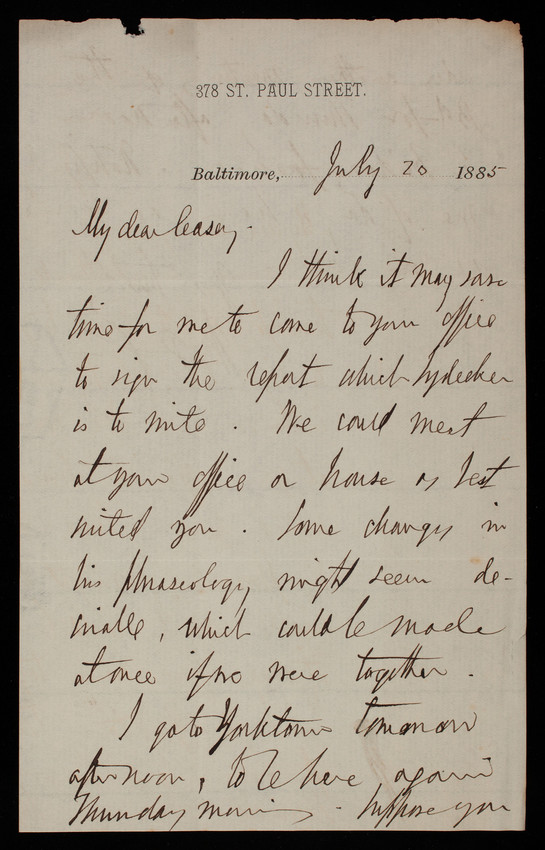 378 ST. PAUL STREET.
Baltimore, July 20 1885
My dear Casey,
I think it may save
time for me to come to your office
to sign the report which Lydecker
is to write. We could meet
at your office or house as best
suited you. Some changes in
his phraseology might seem de-
sirable, which could be made
at once if we were together.
I go to Yorktown tomorrow
afternoon, to be here again
Thursday morning - Suppose you